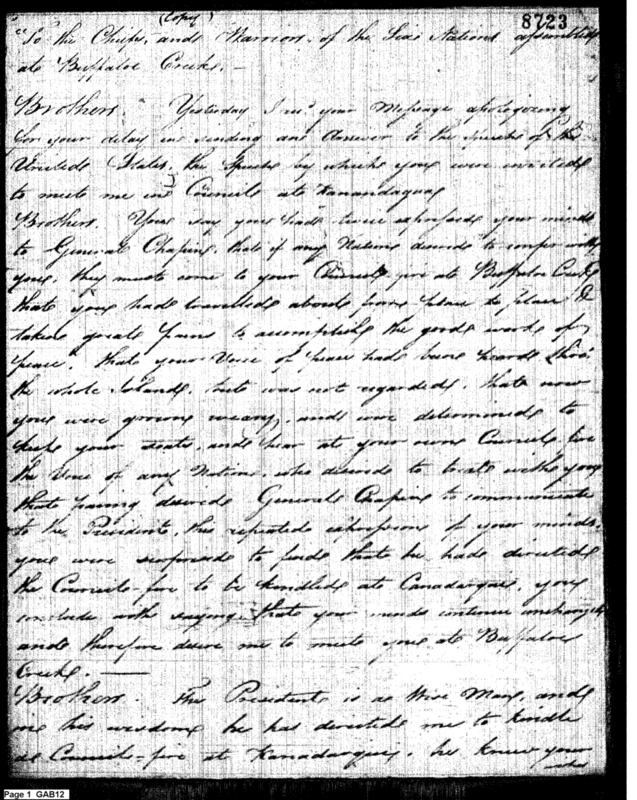 (Copy)
8723
"To the Chiefs, and Warriors of the Six Nations assembled
at Buffaloe Creek. —
Brothers, Yesterday I recd. your Message apologizing
for your delay in sending an Answer to the speech of the
United States, the speech by which you were invited
to meet me in Council at Kanandaqua
Brothers. You say you had twice expressed your minds
to General Chapin, that if any Nation desired to confer with
you, they must come to your Council-fire at Buffaloe Creek
that you had travelled about from place to place &
taken great pains to accomplish the good work of
peace. that your Voice of peace had been heard thro'
the whole Island, but was not regarded. that now
you were grown weary, and were determined to
keep your seats, and hear at your own Council fire
the Voice of any Nation, who desired to treat with you
that having desired General Chapin to communicate
to the President, this repeated expression of your minds,
you were surprised to find that he had directed
the Council-fire to be kindled at Canadarque, you
conclude with saying that your minds continue unchanged
and therefore desire me to meet you at Buffaloe
Creek. —
Brothers. The President is a Wise Man, and
in his wisdom he has directed me to kindle
a Council-fire at Kanadarque, he knew your
Page 1 GAB12